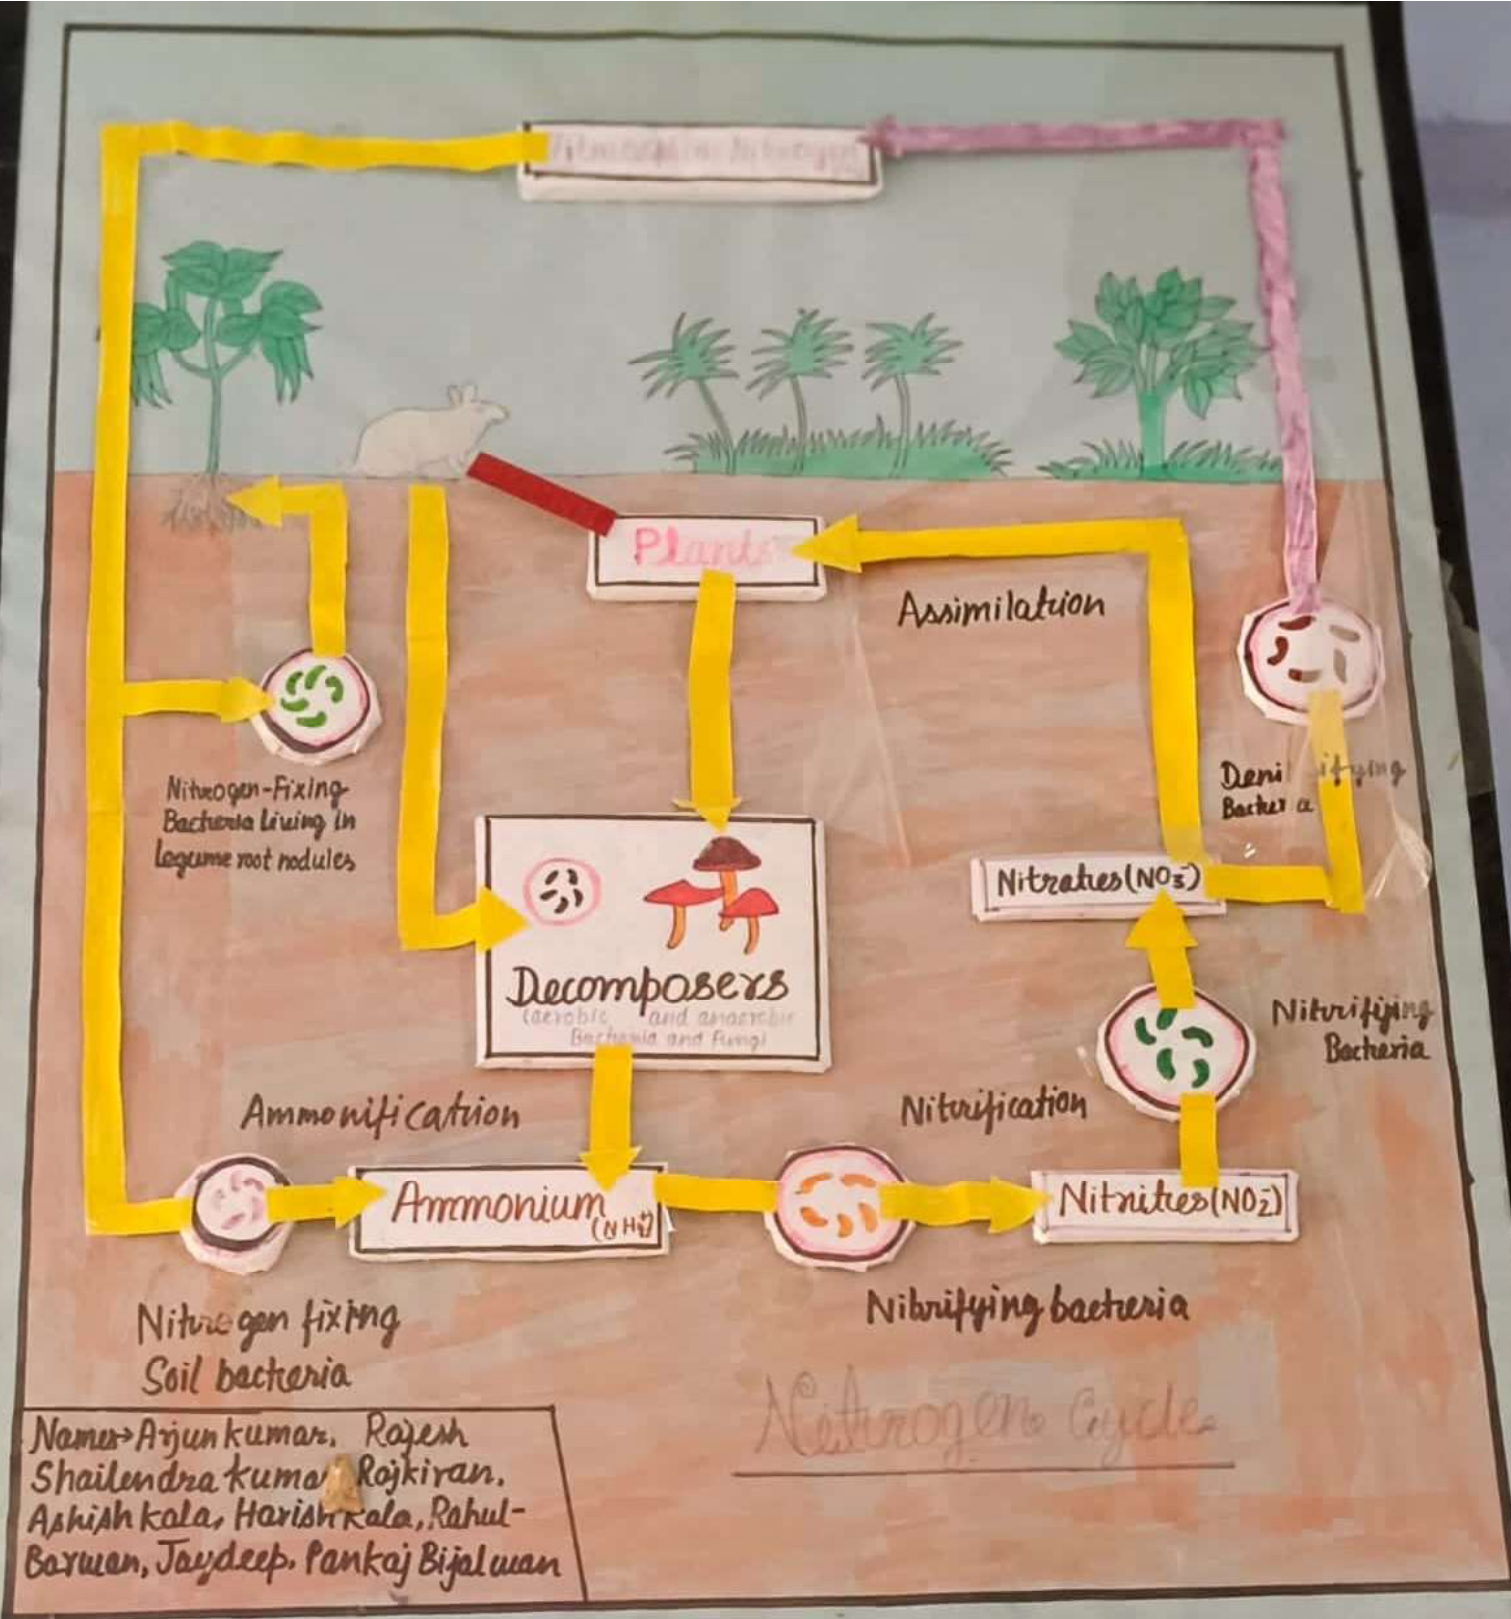 Atmospheric Nitrogen
Plants
Assimilation
Nitrogen-Fixing
Bacteria Living in
Legume root nodules
Denitrifying
Bacteria
Nitrates (NO3-)
Decomposers
(aerobic and anaerobic
Bacteria and Fungi
Nitrifijing
Bacteria
Ammonification
Nitrification
Ammonium
(NH4+)
Nitrites (NO2-)
Nitrogen fixing
Soil bacteria
Nitrifying bacteria
Nitrogen Cycle
Names→Arjun kumar, Rajesh
Shailendra kumar Rajkiran,
Ashish kala, Harish kala, Rahul-
Barwan, Jaydeep, Pankaj Bijalwan